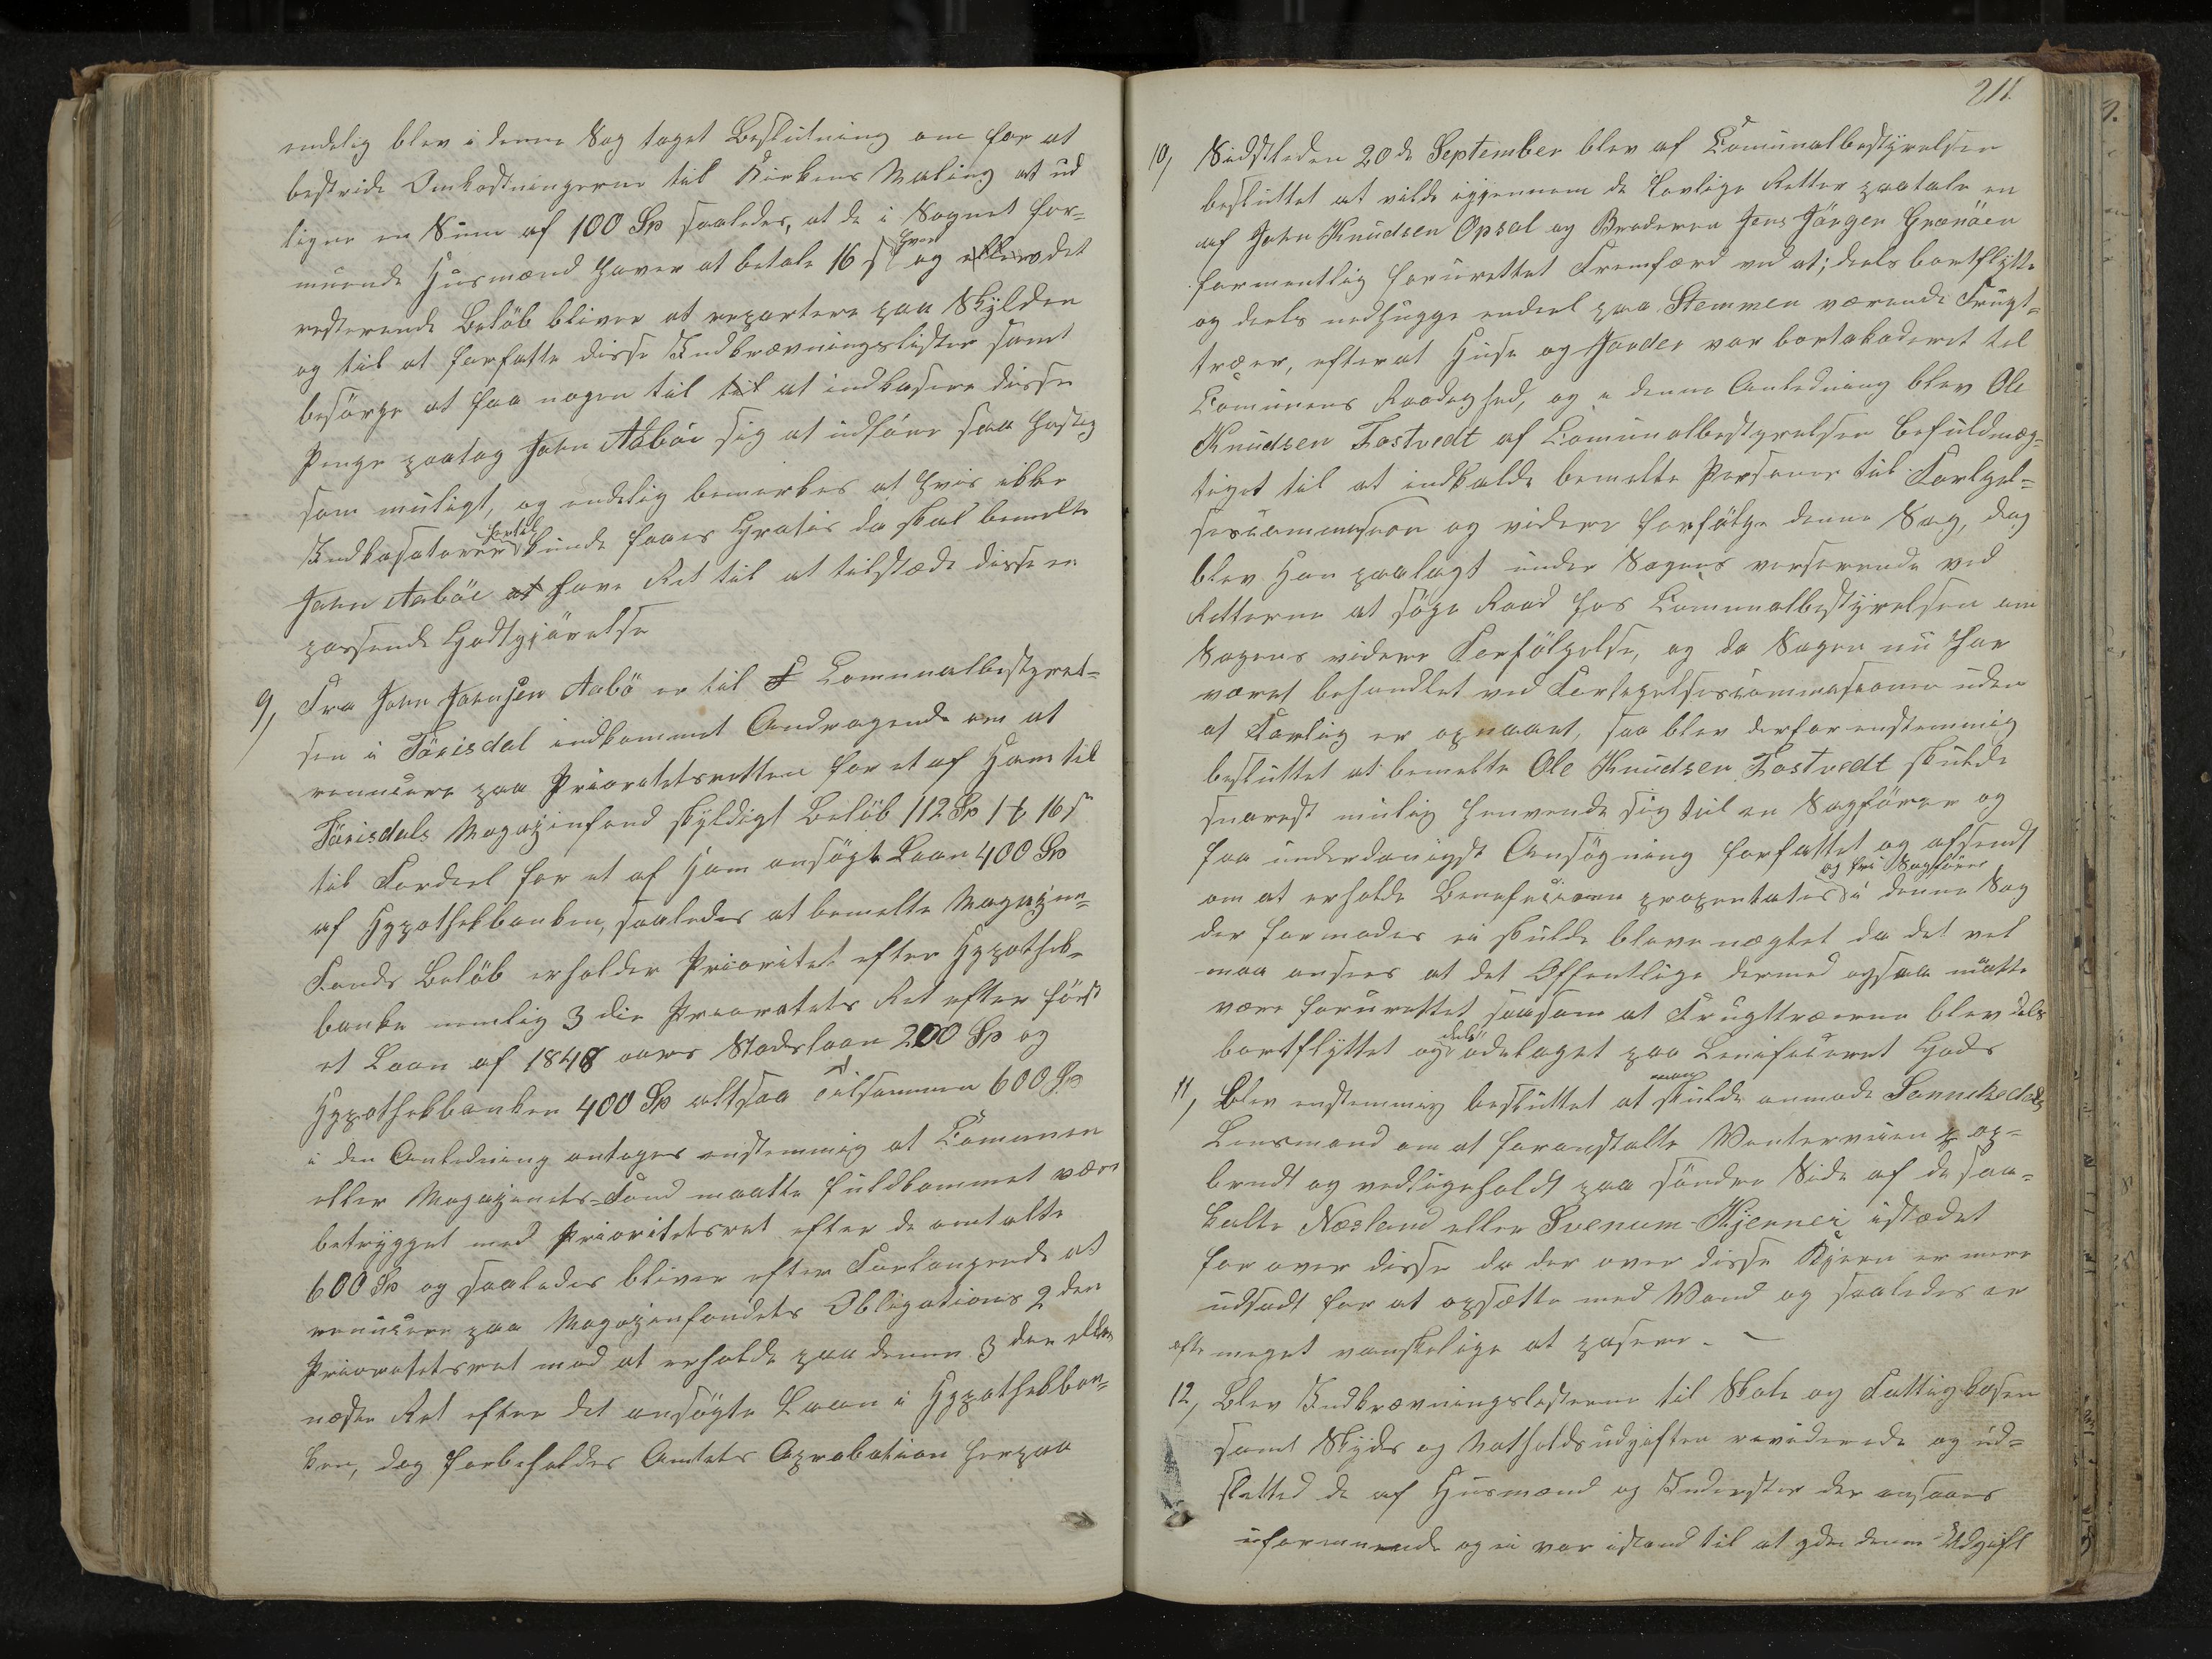 endelig blev i denne Sag taget Beslutning om for at
bestride Omkostningerne til Kirkens Maling at ud
ligne en Sum af 100 Sp saaledes, at de i Sognet for-
muende Husmænd haver at betale 16 s hver og det
resterende Beløb bliver at repartere paa Skylden
og til at forfatte disse Indkrævningslister samt
besørge at faa nogen til til at indkasere disse
Penge paatog John Aabøe sig at udføre saa hastig
som muligt, og endelig bemærkes at hvis ikke
Indkasatorer hertil kunde faaes Gratis da skal bemelte
John Aabøe at have Ret til at tilstæde disse en
passende Godtgjørelse
9, Fra John Jornsen Aabø er til Communalbestyrel-
sen i Törisdal indkommet Andragende om at
renuncere paa Prioratetsretten for et af Ham til
Törisdals Magazinfond skyldigt Beløb 112 Sp 1 t 16 s
til Fordeel for et af Ham ansøgt Laan 400 Sp
af Hypothekbanken, saaledes at bemelte Magazin-
Fonds Beløb erholder Prioritet efter Hypothek-
banke nemlig 3 die Prioratets Ret efter først
et Laan af 1848 aars Stadslaan 200 Sp og
Hypothekbanken 400 Sp altsaa tilsammen 600 Sp
i den Anledning antoges enstemmig at Comunen
eller Magazinets-Fond maatte fuldkommet være
betrygget med Prioritetsret efter de omtalte
600 Sp og saaledes bliver efter Forlangende at
renuncere paa Magazinfondets Obligations 2 den
Prioratetsret mod at erholde paa denne 3 die eller
næste Ret efter det ansøgte Laan i Hypothekban-
ken, dog forbeholdes Amtets Aprobation herpaa
211.
10, Sidstleden 20de September blev af Comunalbestyrelsen
besluttet at vilde igjennem de Lovlige Retter paatale en
af John Knudsen Opsal og Broderen Jens Jörgen Grönöen
formentlig forurettet Fremfærd ved at; deels bortflytte
og deels nedhugge endeel paa Stemmen værende Frugt-
træer, efterat Huse og Jorder var bortakoderet til
Comunens Raadighed, og i denne Anledning blev Ole
Knudsen Tostvedt af Comunalbestyrelsen befuldmæg-
tiget til at indkalde bemelte Personer til Forligel-
sescommission og videre forfølge denne Sag, dog
blev Han paalagt under Sagens verserende ved
Retterne at søge Raad hos Comunalbestyrelsen om
Sagens videre Forfølgelse, og da Sagen nu har
været behandlet ved Forligelsescommissionen uden
at Forlig er opnaaet, saa blev derfor enstemmig
besluttet at bemelte Ole Knudsen Tostvedt skulde
snarest mulig henvende sig til en Sagfører og
faa underdanigst Ansøgning forfattet og afsendt
om at erholde Beneficium og fri Sagfører i denne Sag
der formodes ei skulde blive nægtet da det vel
maa ansees at det Offentlige dermed ogsaa matte
være forurettet saasom at Frugttræerne blev dels
bortflyttet og dels ødelaget paa Benificeret Gods
11, Blev enstemmig besluttet at man skulde anmode Sannikedals
Lensmand om at foranstalte Vinterveien op-
brudt og vedligeholdt paa søndre Side af de saa-
kalte Næsland eller Svenum-Kjennei istædet
for over disse da der over disse Kjern er mere
udsadt for at opsætte med Vand og saaledes er
ofte meget vanskelige at pasere. —
12, Blev Indkrævningslisterne til Skole og Fattigkasen
samt Skyds og Matholdsudgiften reviderede og ud-
sletted de af Husmænd og Inderster der ansaaes
uformuende og ei var istand til at yde denne Udgift